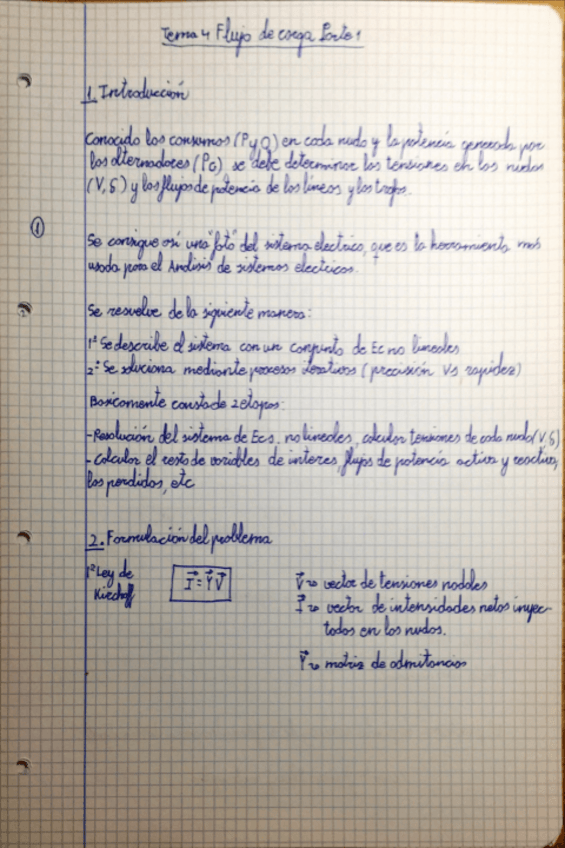 Tema 4 Flujo de carga Parte 1
1. Introducción
Conocido los consumos (P y Q) en cada nudo y la potencia generada por
los alternadores (PG) se debe determinar las tensiones en los nudos
(V, δ) y los flujos de potencia de las lineas y los trafos.
1
Se consigue así una "foto" del sistema electrico, que es la herramienta más
usada para el Análisis de sistemas electricos.
Se resuelve de la siguiente manera:
1º Se describe el sistema con un conjunto de Ec no lineales
2º Se soluciona mediante procesos iterativos (precisión Vs rapidez)
Basicamente consta de 2 etapas:
-Resolución del sistema de Ecs. no lineales, calcular tensiones de cada nudo (V, δ)
-Calcular el resto de variables de interes, flujos de potencia activa y reactiva,
las perdidas, etc
2. Formulación del problema
1ª Ley de I⃗ = Y⃗ V⃗ V⃗ ⇝ vector de tensiones nodales
Kirchoff I⃗ ⇝ vector de intensidades netas inyec-
tadas en los nudos.
Y⃗ ⇝ matriz de admitancias